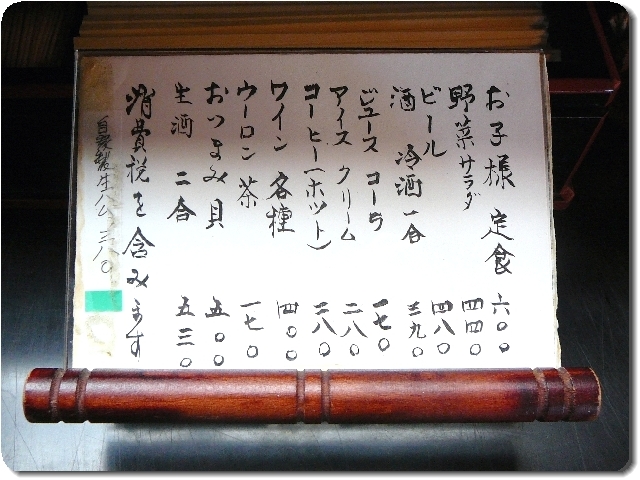 お子様定食 六〇〇
野菜サラダ 四四〇
ビール 四八〇
酒 冷酒 一合 三九〇
ジュース コーラ 一七〇
アイスクリーム 二八〇
コーヒー(ホット) 二八〇
ワイン各種 四〇〇
ウーロン茶 一七〇
おつまみ貝 五〇〇
生酒 二合 五三〇
消費税を含みます
自家製生ハム 三八〇